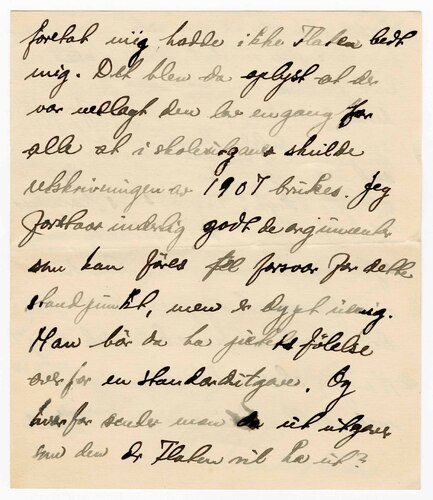 foretat mig, hadde ikke Flaten bedt
mig. Det blev da oplyst at der
var vedtagt den lov engang for
alle at i skoleutgaver skulde
retskrivningen av 1907 brukes. Jeg
forstaar inderlig godt de argumenter
som kan føres til forsvar for dette
standpunkt, men er dypt uenig.
Man bør da ha følelse
overfor en standardutgave. Og
hvorfor sender man da ut utgaver
som den dr Flaten vil ha ut?